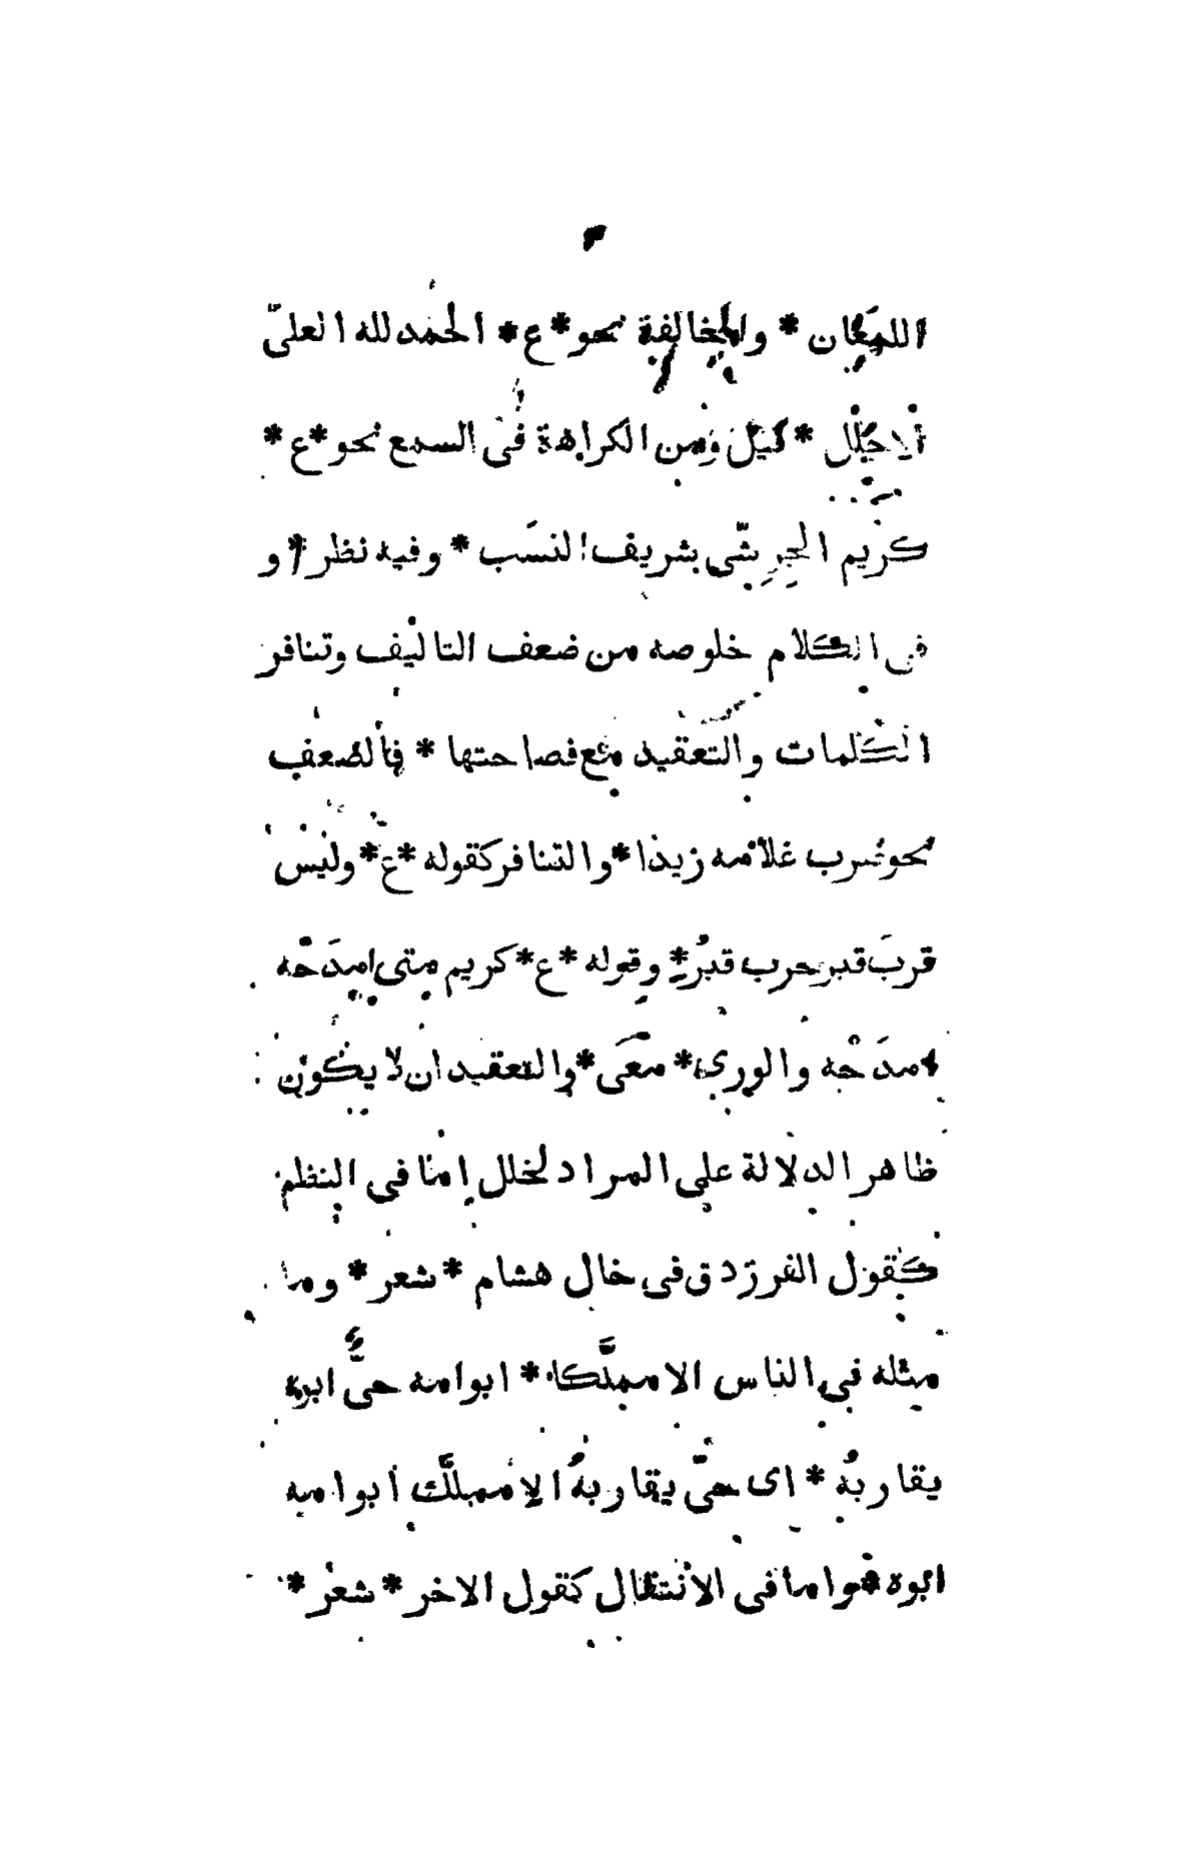 ٣
اللمعان * والمخالفة نحو * ع * الحمد لله العليّ
الاجلل * قيل ومن الكراهة في السمع نحو * ع *
كريم الجِرِشّى شريف النسَب * وفيه نظر * و
في الكلام خلوصه من ضعف التاليف وتنافر
الكلمات والتعقيد مع فصاحتها * فالضعف
نحو ضرب غلامه زيدا * والتنافر كقوله * ع * وليس
قربَ قبر حرب قبرُ * وقوله * ع * كريم متى امدَحْه
امدَحْه والورى * معى * والتعقيد ان لا يكون
ظاهر الدلالة على المراد لخلل اما في النظم
كقول الفرزدق في خال هشام * شعر * وما
مثله في الناس الا مملَّكا * ابو امه حىٌّ ابوه
يقاربُه * اى حىّ يقاربهُ الا مملَّك ابو امه
ابوه * واما في الانتقال كقول الاخر * شعر *